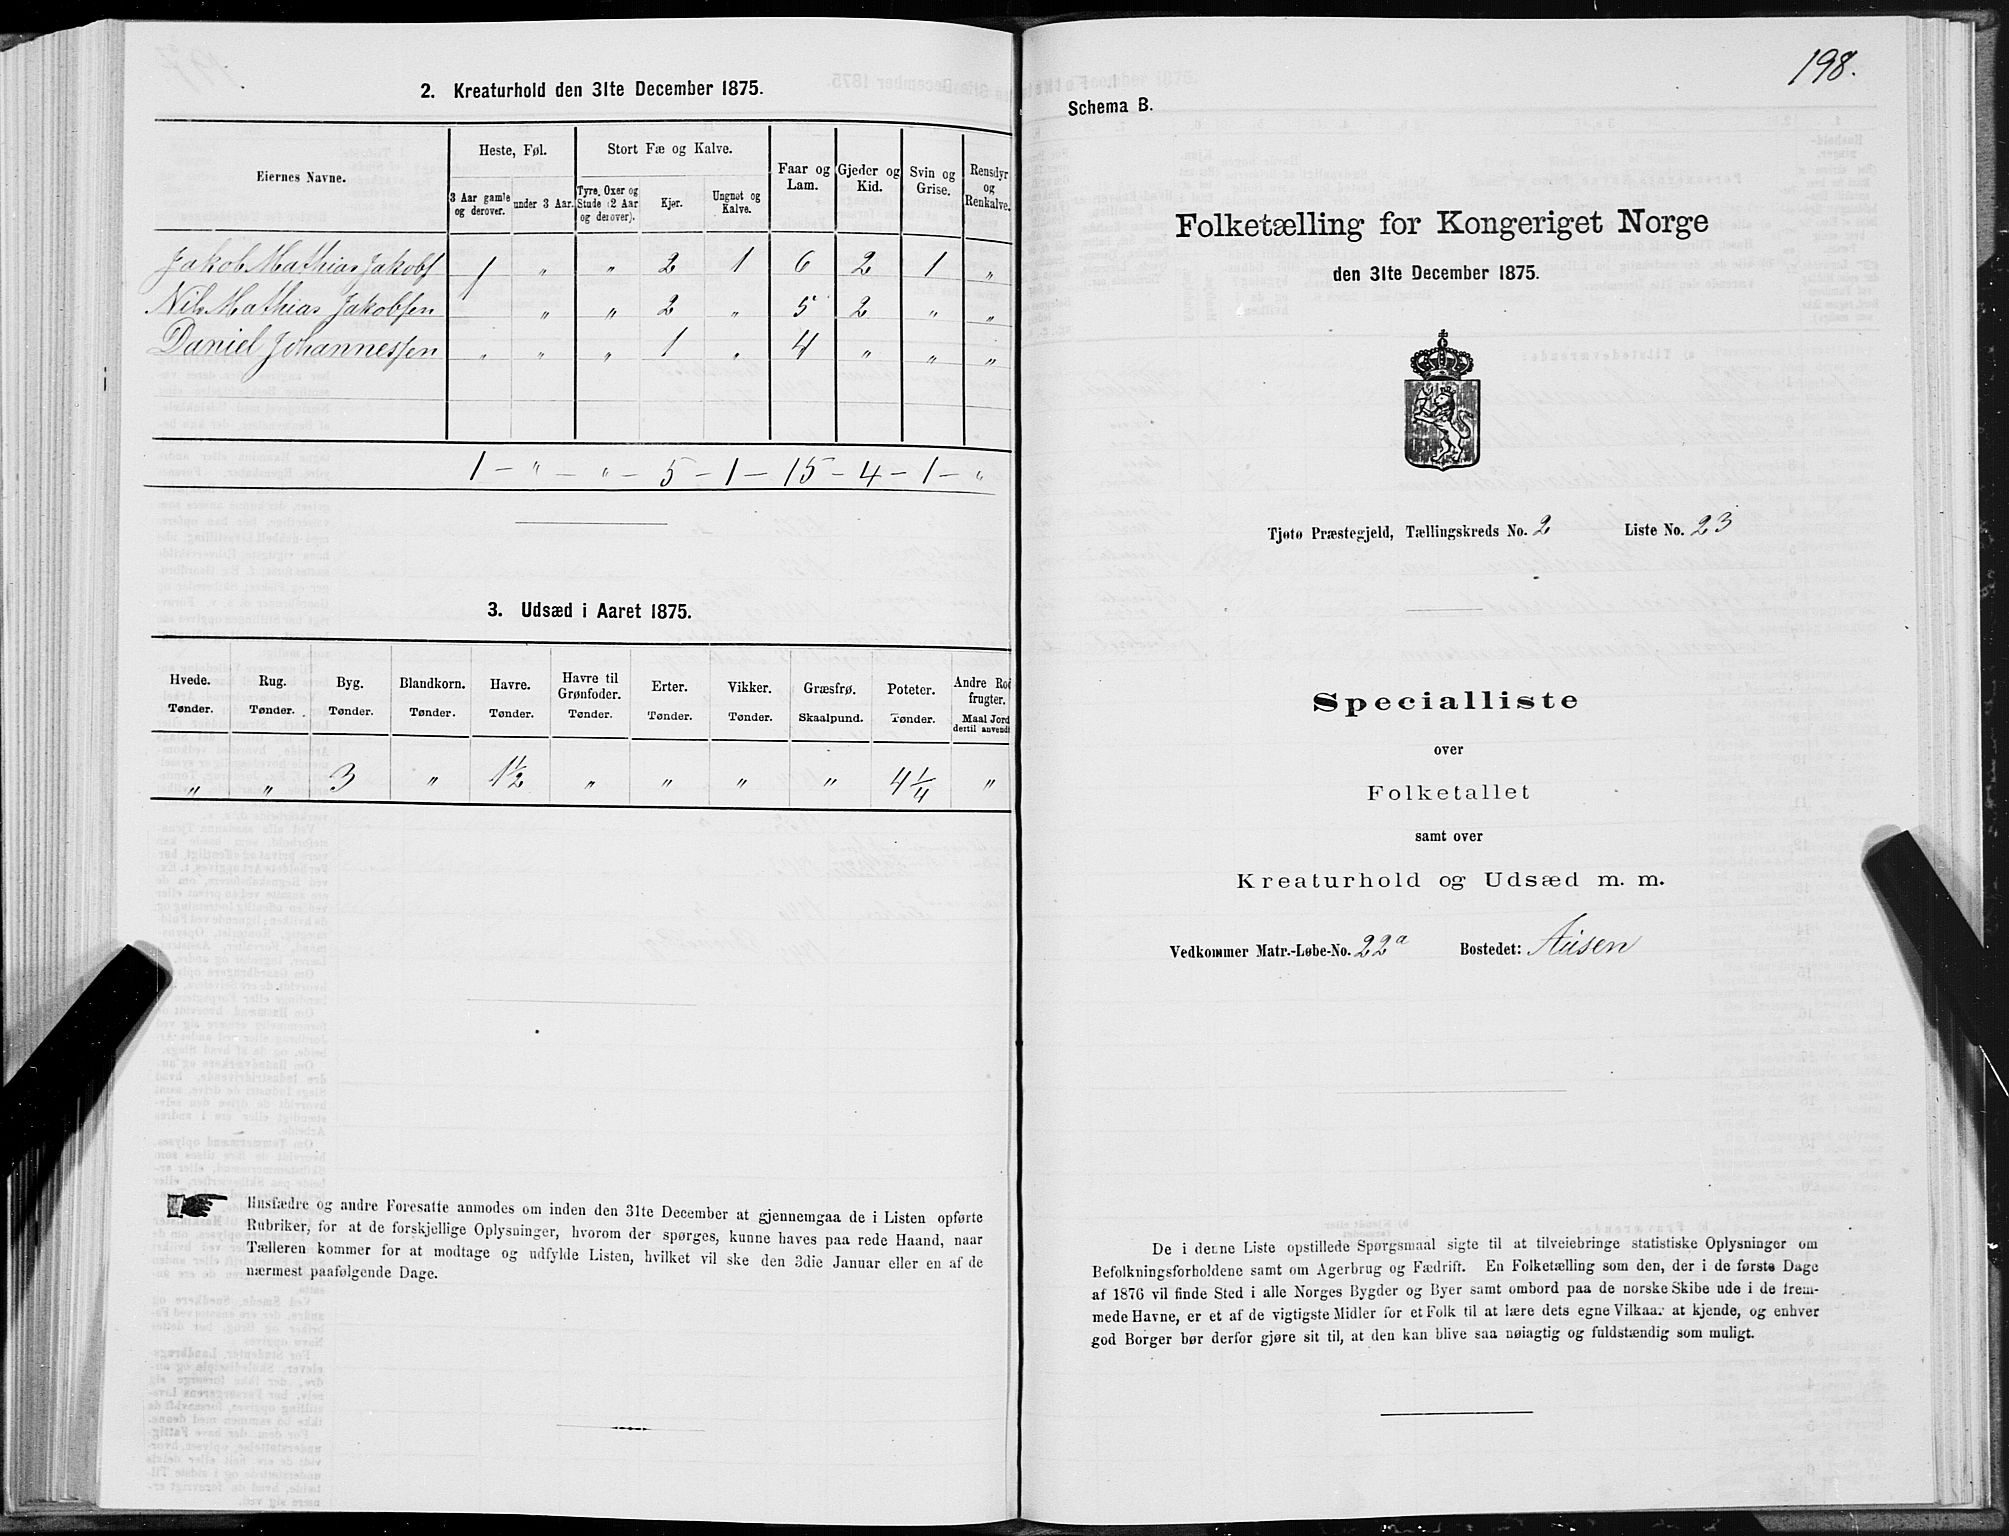 2. Kreaturhold den 31te December 1875.
Eiernes Navne. Heste, Føl. Stort Fæ og Kalve. Faar og Lam. Gjeder og Kid. Svin og Grise. Rensdyr og Renkalve.
3 Aar gamle og derover. under 3 Aar. Tyre, Oxer og Stude (2 Aar og derover). Kjør. Ungnøt og Kalve.
Jakob Mathias Jakobs 1 " " 2 1 6 2 1 "
Nils Mathias Jakobsen " " 2 " 5 2 " "
Daniel Johannessen " " " 1 " 4 " " "
1 - " - " - 5 - 1 - 15 - 4 - 1 - "
3. Udsæd i Aaret 1875.
Hvede. Rug. Byg. Blandkorn. Havre. Havre til Grønfoder. Erter. Vikker. Græsfrø. Poteter. Andre Rod frugter.
Tønder. Tønder. Tønder. Tønder. Tønder. Tønder. Tønder. Tønder. Skaalpund. Tønder. Maal Jord dertil anvendt
" " 3 " 1 1/2 " " " " 4 1/4 "
Husfædre og andre Foresatte anmodes om inden den 31te December at gjennemgaa de i Listen opførte
Rubriker, for at de forskjellige Oplysninger, hvorom der spørges, kunne haves paa rede Haand, naar
Tælleren kommer for at modtage og udfylde Listen, hvilket vil ske den 3die Januar eller en af de
nærmest paafølgende Dage.
198.
Schema B.
Folketælling for Kongeriget Norge
den 31te December 1875.
Tjøtø Præstegjeld, Tællingskreds No. 2 Liste No. 23
Specialliste
over
Folketallet
samt over
Kreaturhold og Udsæd m. m.
Vedkommer Matr.-Løbe-No. 22a Bostedet: Ausen
De i denne Liste opstillede Spørgsmaal sigte til at tilveiebringe statistiske Oplysninger om
Befolkningsforholdene samt om Agerbrug og Fædrift. En Folketælling som den, der i de første Dage
af 1876 vil finde Sted i alle Norges Bygder og Byer samt ombord paa de norske Skibe ude i de frem-
mede Havne, er et af de vigtigste Midler for et Folk til at lære dets egne Vilkaar at kjende, og enhver
god Borger bør derfor gjøre sit til, at den kan blive saa nøiagtig og fuldstændig som muligt.